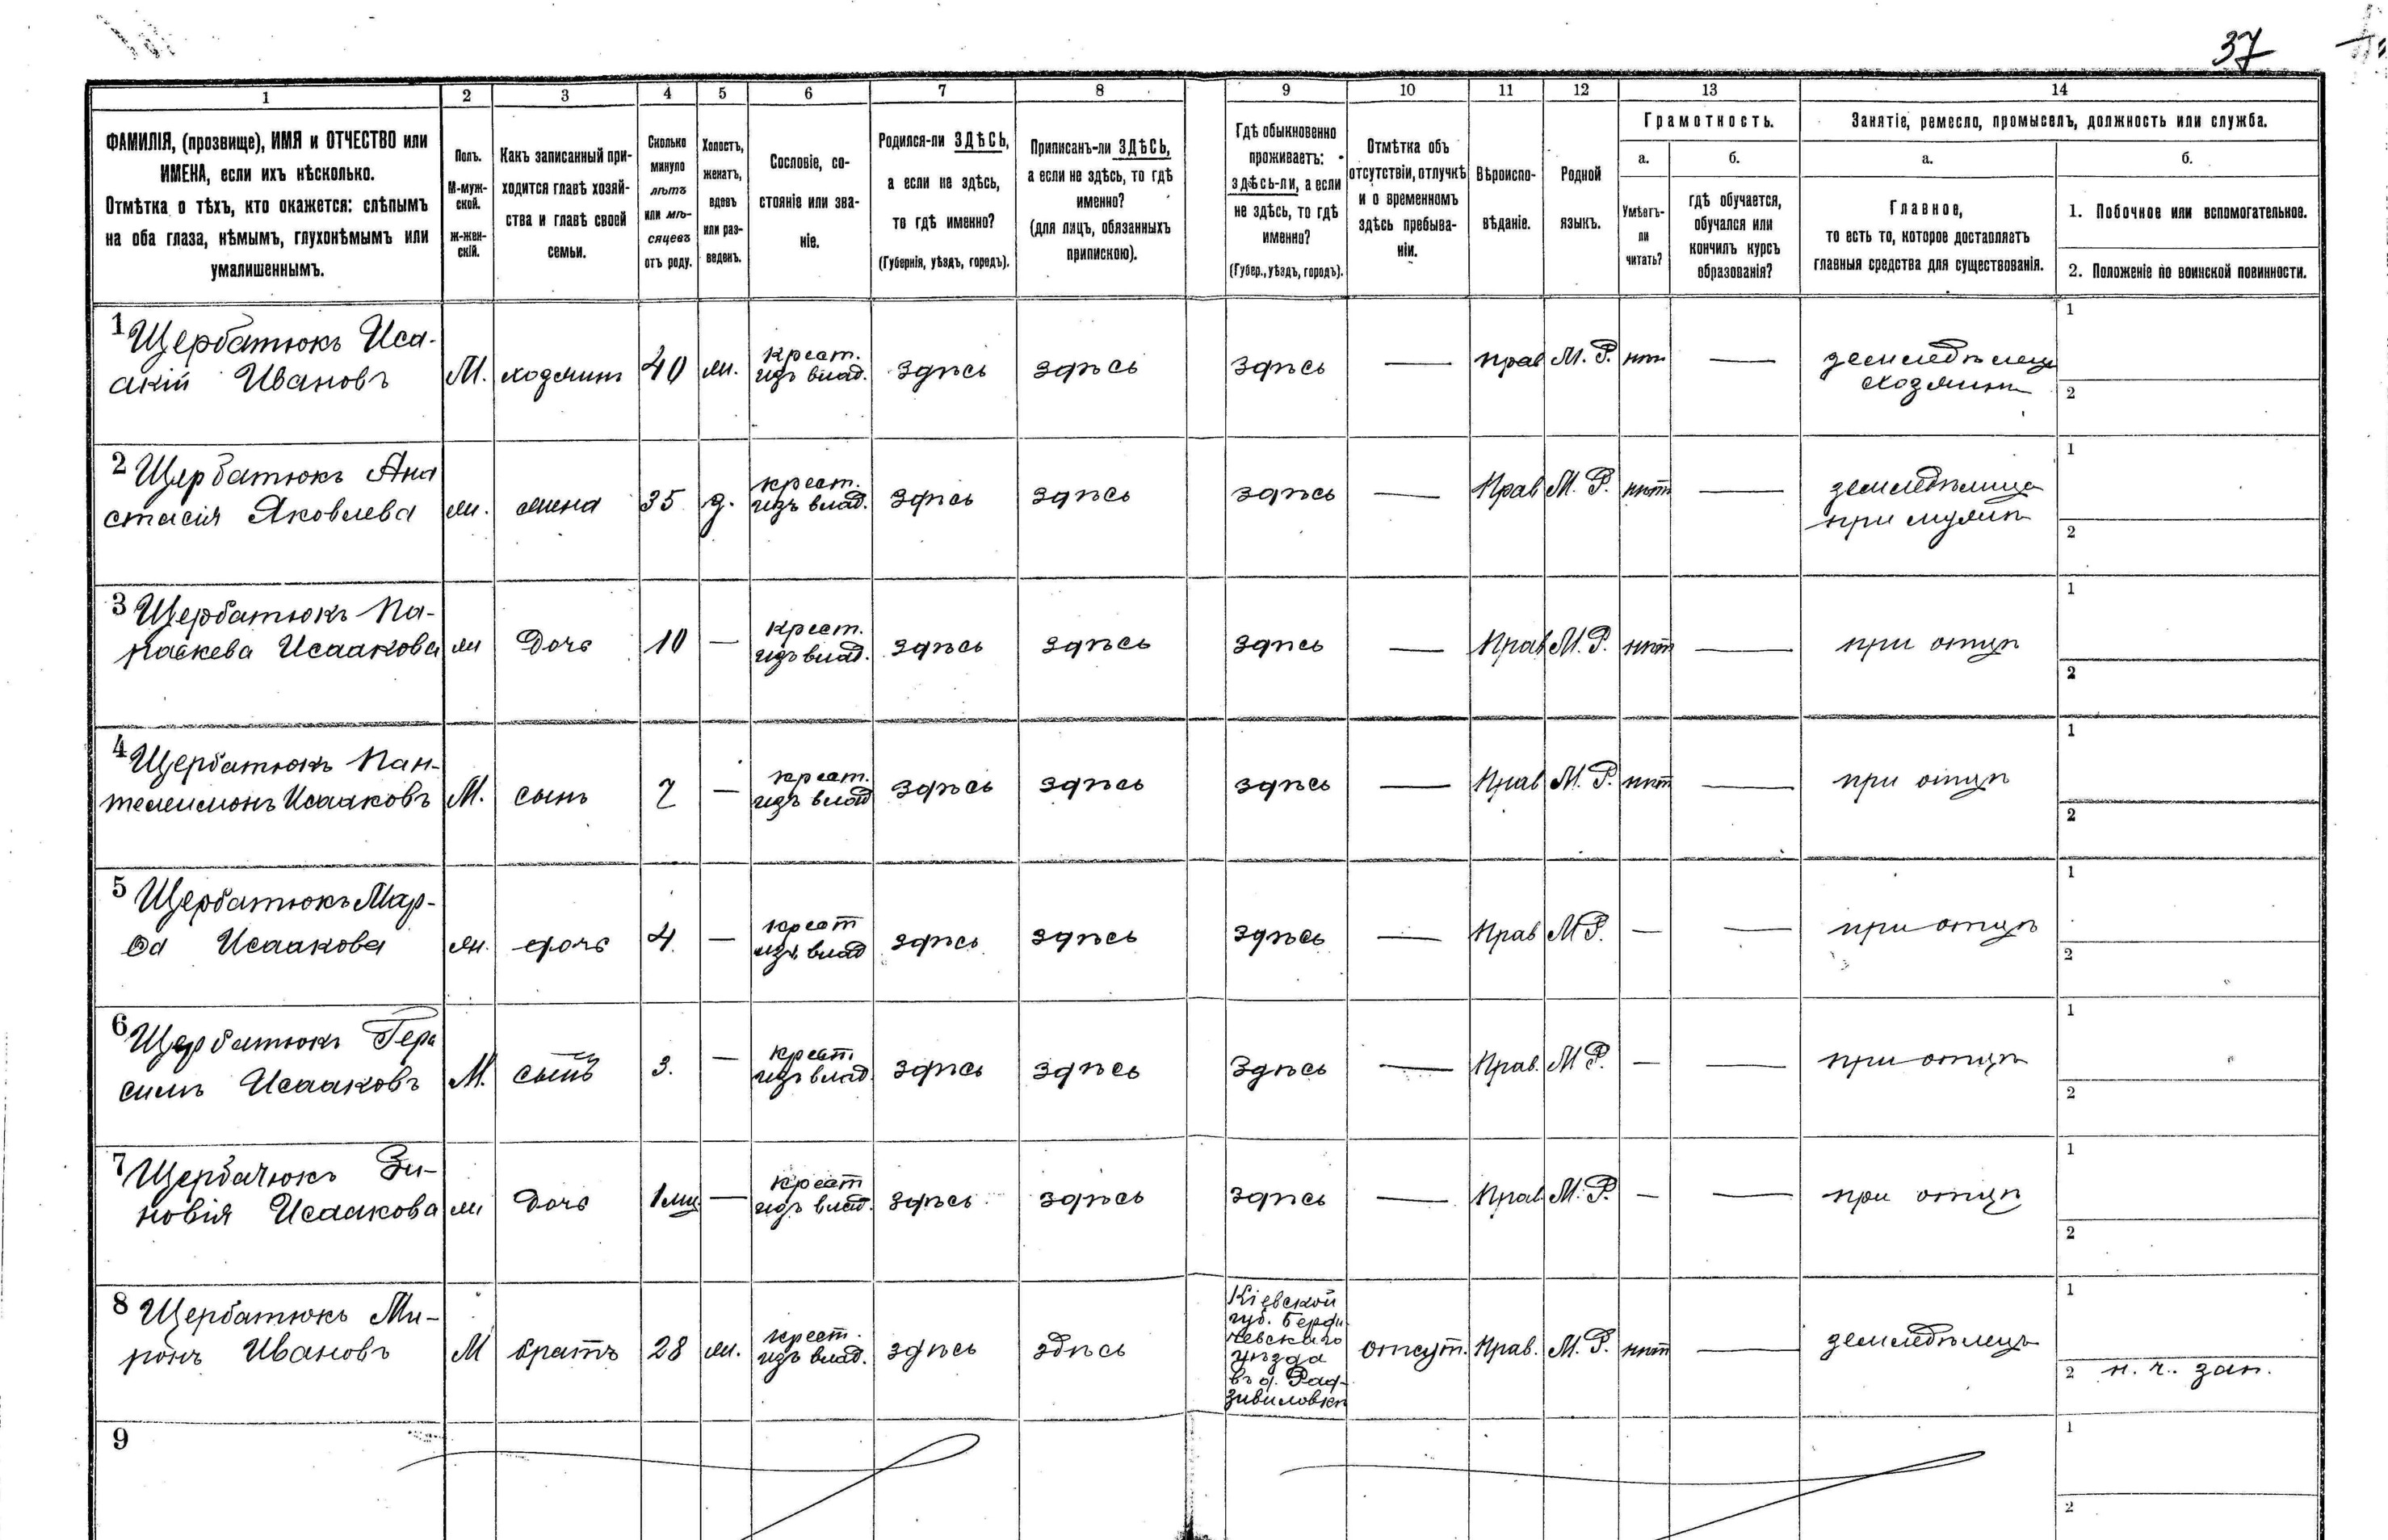 37
1
2
3
4
5
6
7
8
9
10
11
12
13
14
ФАМИЛІЯ, (прозвище), ИМЯ и ОТЧЕСТВО или
ИМЕНА, если ихъ нѣсколько.
Отмѣтка о тѣхъ, кто окажется: слѣпымъ
на оба глаза, нѣмымъ, глухонѣмымъ или
умалишеннымъ.
Полъ.
М-муж-
ской.
Ж-жен-
скій.
Какъ записанный при-
ходится главѣ хозяй-
ства и главѣ своей
семьи.
Сколько
минуло
лѣтъ
или мѣ-
сяцевъ
отъ роду.
Холостъ,
женатъ,
вдовъ
или раз-
веденъ.
Сословіе, со-
стояніе или зва-
ніе.
Родился-ли ЗДѢСЬ,
а если не здѣсь,
то гдѣ именно?
(Губернія, уѣздъ, городъ).
Приписанъ-ли ЗДѢСЬ,
а если не здѣсь, то гдѣ
именно?
(для лицъ, обязанныхъ
припискою).
Гдѣ обыкновенно
проживаетъ:
здѣсь-ли, а если
не здѣсь, то гдѣ
именно?
(Губер., уѣздъ, городъ).
Отмѣтка объ
отсутствіи, отлучкѣ
и о временномъ
здѣсь пребыва-
ніи.
Вѣроиспо-
вѣданіе.
Родной
языкъ.
Грамотность.
а.
Умѣетъ-
ли
читать?
б.
гдѣ обучается,
обучался или
кончилъ курсъ
образованія?
Занятіе, ремесло, промыселъ, должность или служба.
а.
Главное,
то есть то, которое доставляетъ
главныя средства для существованія.
б.
1. Побочное или вспомогательное.
2. Положеніе по воинской повинности.
1 Щербатюкъ Иса-
акій Ивановъ
М.
хозяинъ
40
ж.
крест.
изъ влад.
здѣсь
здѣсь
здѣсь
—
прав
М. Р.
нѣт
—
земледѣлецъ
хозяинъ
1
2
2 Щербатюкъ Ана
стасія Яковлева
ж.
жена
35
з.
крест.
изъ влад.
здѣсь
здѣсь
здѣсь
—
Прав
М. Р.
нѣт
—
земледѣлица
при мужѣ
1
2
3 Щербатюкъ Па-
раскева Исаакова
ж
Дочь
10
—
крест.
изъ влад.
здѣсь
здѣсь
здѣсь
—
Прав
М. Р.
нѣт
—
при отцѣ
1
2
4 Щербатюкъ Пан-
телеимонъ Исааковъ
М.
сынъ
7
—
крест.
изъ влад
здѣсь
здѣсь
здѣсь
—
Прав
М. Р.
нѣт
—
при отцѣ
1
2
5 Щербатюкъ Мар-
ѳа Исаакова
ж.
дочь
4
—
крест
изъ влад
здѣсь
здѣсь
здѣсь
—
Прав
М Р.
—
—
при отцѣ
1
2
6 Щербатюкъ Гера
симъ Исааковъ
М.
сынъ
3.
—
крест.
изъ влад.
здѣсь
здѣсь
здѣсь
—
Прав.
М Р.
—
—
при отцѣ
1
2
7 Щербатюкъ Зи-
новія Исаакова
ж
Дочь
1 мц
—
крест
изъ влад.
здѣсь
здѣсь
здѣсь
—
Прав.
М. Р.
—
—
при отцѣ
1
2
8 Щербатюкъ Ми-
ронъ Ивановъ
М
братъ
28
ж.
крест.
изъ влад.
здѣсь
здѣсь
Кіевской
губ. Берди
чевскаго
уѣзда
въ д. Рад-
зивиловкѣ
отсут.
Прав.
М. Р.
нѣт
—
земледѣлецъ
1
2 н. ч. зап.
9
1
2